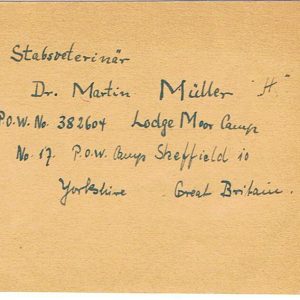 Stabsveterinär
Dr. Martin Müller "H."
P.O.W. No. 382604 Lodge Moor Camp
No. 17. P.O.W. Camp Sheffield 10
Yorkshire Great Britain.